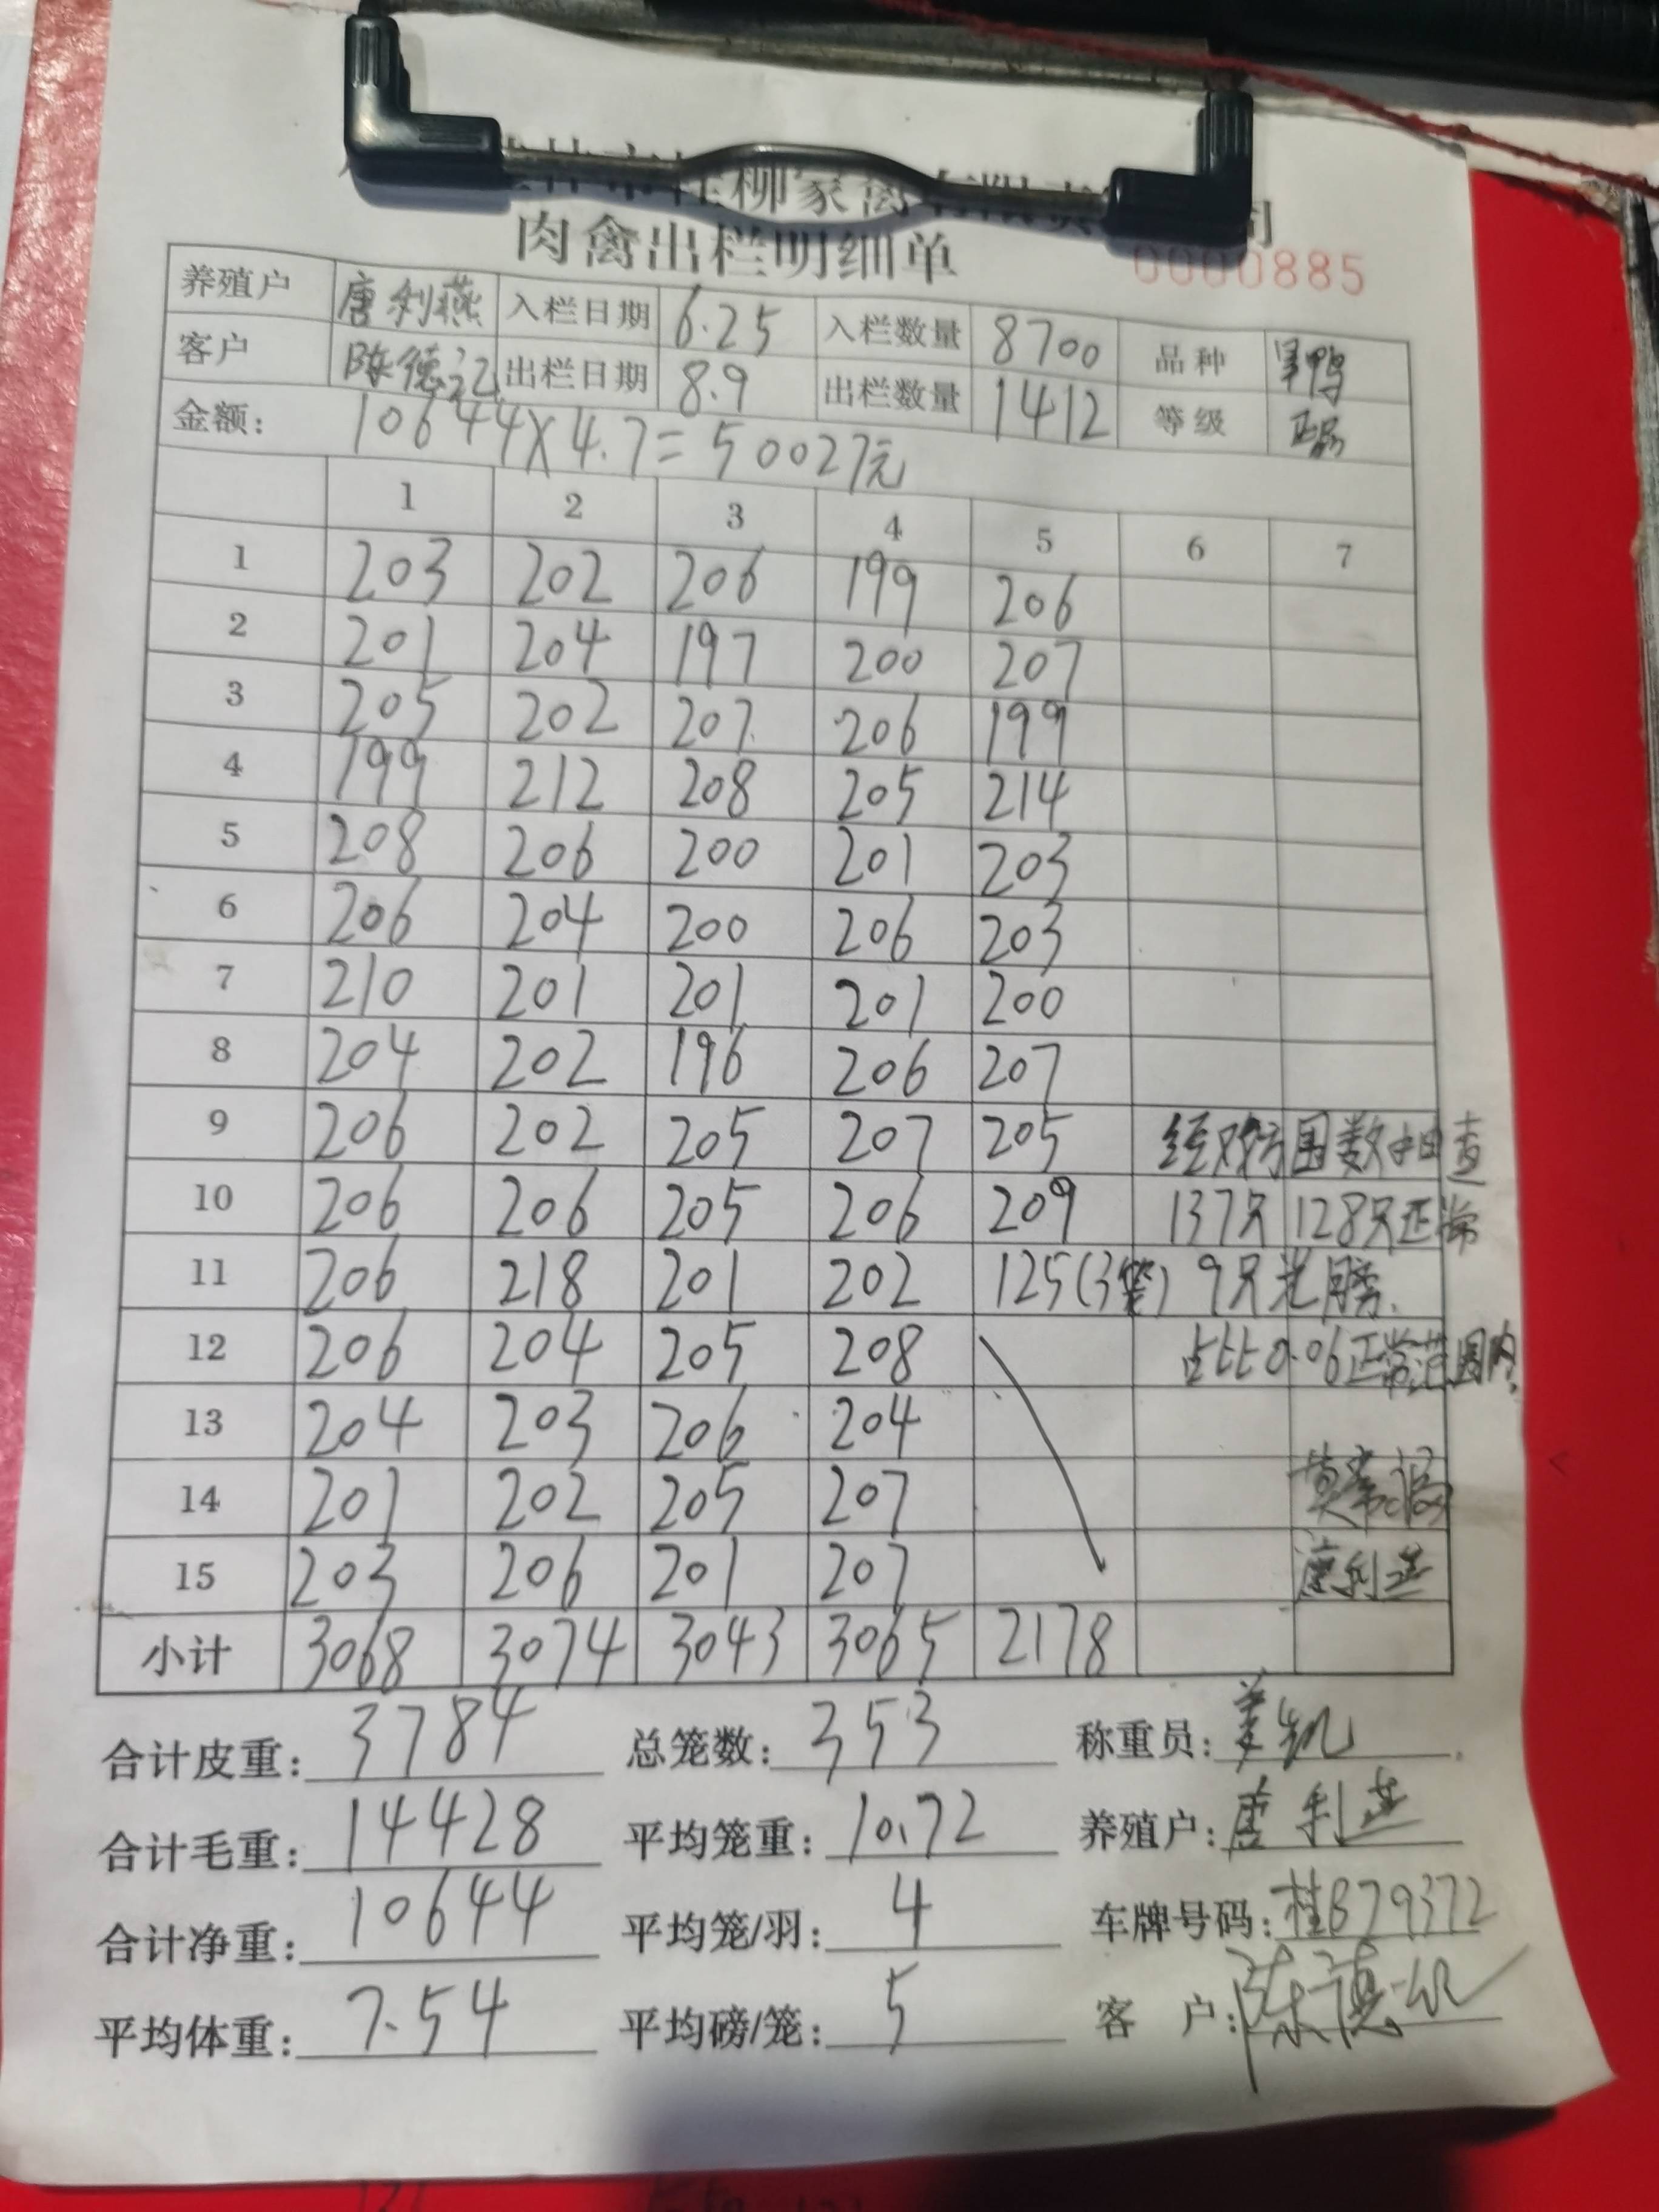 柳家禽有限责 司
肉禽出栏明细单
0000885
养殖户 唐利燕 入栏日期 6.25 入栏数量 8700 品种
客户 陈德记 出栏日期 8.9 出栏数量 1412 等级 正品
金额: 10644X4.7=50027元
1 2 3 4 5 6 7
1 203 202 206 199 206
2 201 204 197 200 207
3 205 202 207. 206 199
4 199 212 208 205 214
5 208 206 200 201 203
6 206 204 200 206 203
7 210 201 201 201 200
8 204 202 196 206 207
9 206 202 205 207 205 经 围数 查
10 206 206 205 206 209 137只 128只正常
11 206 218 201 202 125(3笼) 9只光膀.
12 206 204 205 208 占比0.06正常范围内.
13 204 203 206 204
14 201 202 205 207
15 203 206 201 207 唐利燕
小计 3068 3074 3043 3065 2178
合计皮重: 3784 总笼数: 353 称重员:
合计毛重: 14428 平均笼重: 10.72 养殖户: 唐利燕
合计净重: 10644 平均笼/羽: 4 车牌号码: 桂B79372
平均体重: 7.54 平均磅/笼: 5 客 户: 陈德记